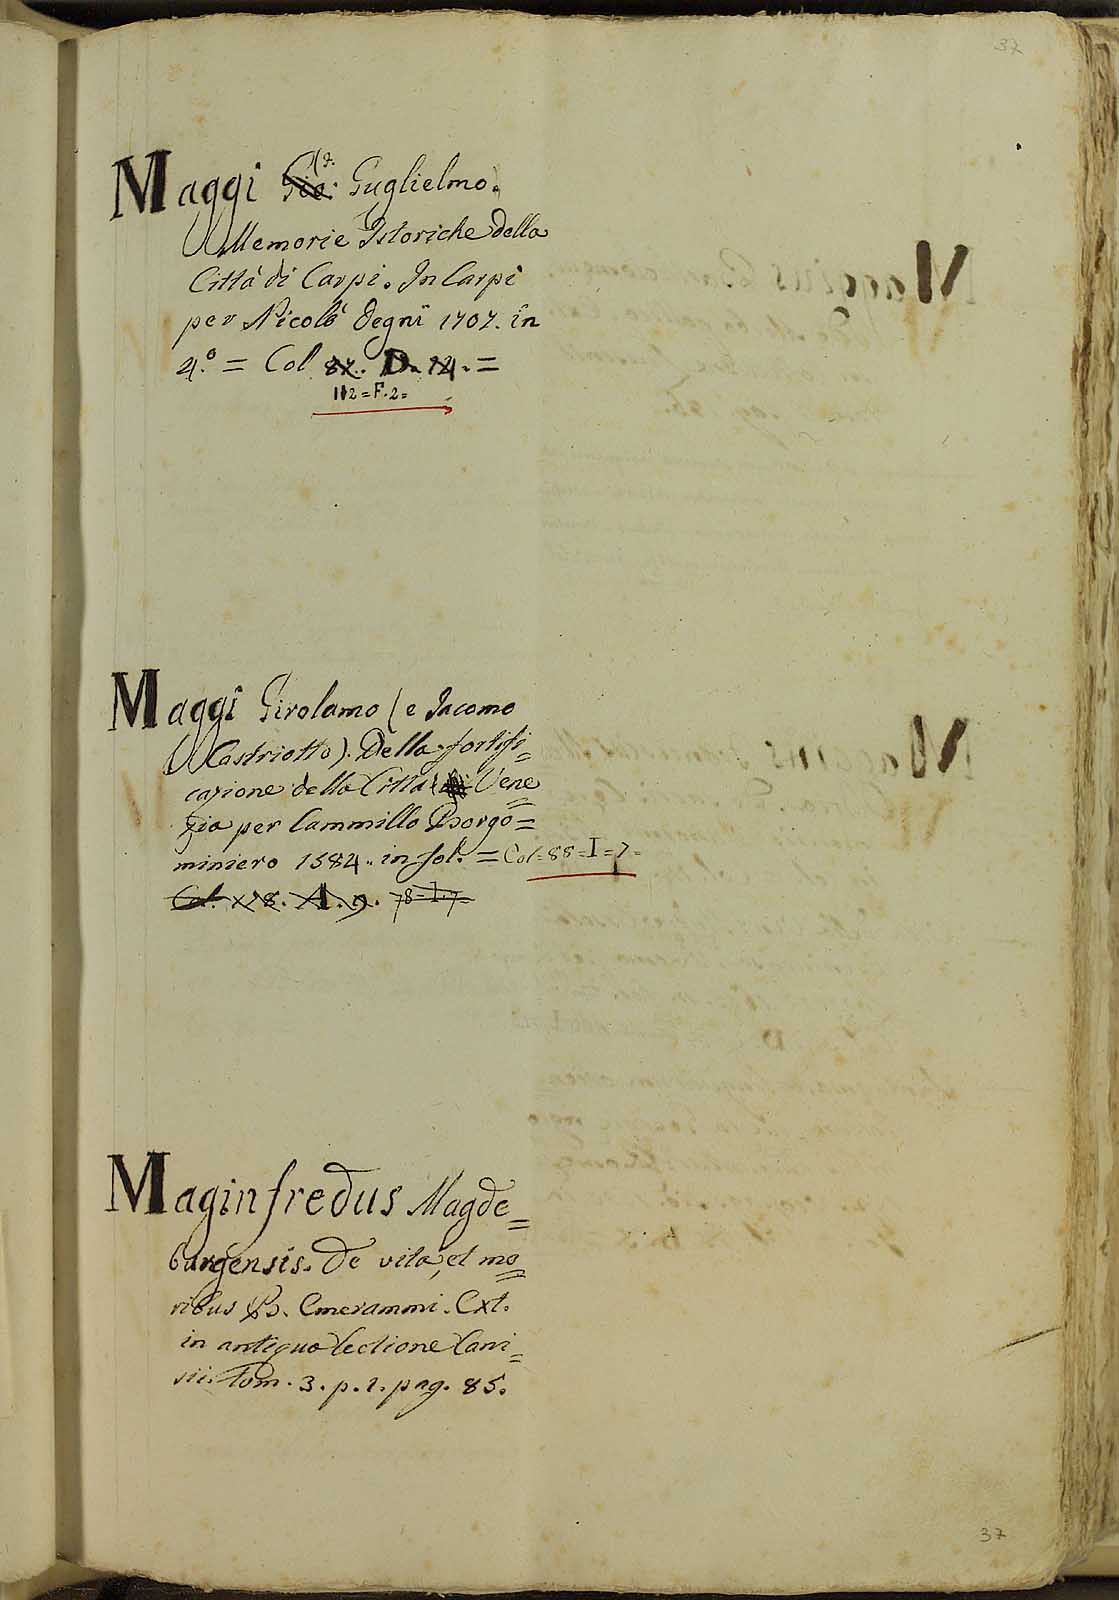 37
Maggi Gio: Guglielmo.
Memorie Istoriche della
Città di Carpi. In Carpi
per Nicolò Degni 1707. in
4.º = Col 87. D. 14. =
112 = F. 2 =
Maggi Girolamo (e Jacomo
Castriotto). Della fortifi=
cazione della Città Vene=
zia per Cammillo Borgo=
miniero 1584. in fol. = Col = 88 = I = 7 =
Col. 78. A. 9. 78 = I. 7 =
Maginfredus Magde=
burgensis. De vita, et mo=
ribus B. Emerammi. Ext.
in antiqua lectione Cani=
sii. Tom. 3. p. 1. pag. 85.
37